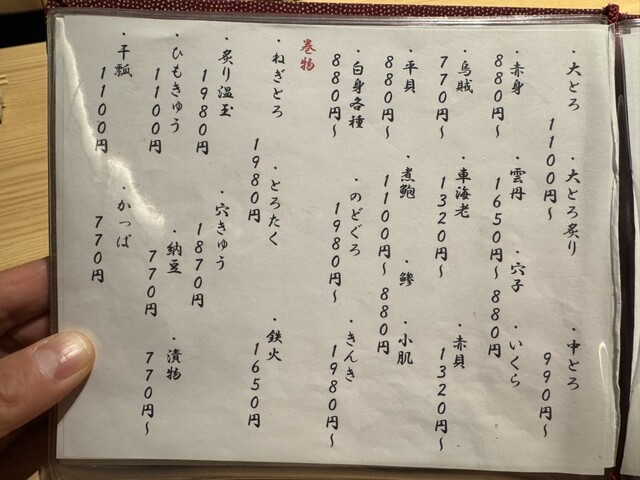 ・大とろ ・大とろ炙り ・中とろ
1100円〜 990円〜
・赤身 ・雲丹 ・穴子 ・いくら
880円〜 1650円〜 880円
・烏賊 ・車海老 ・赤貝
770円〜 1320円〜 1320円〜
・平貝 ・煮鮑 ・鯵 ・小肌
880円〜 1100円〜 880円
・白身各種 ・のどぐろ ・きんき
880円〜 1980円〜 1980円〜
巻物
・ねぎとろ ・とろたく ・鉄火
1980円 1650円
・炙り温玉 ・穴きゅう
1980円 1870円
・ひもきゅう ・納豆 ・漬物
1100円 770円〜 770円〜
・干瓢 ・かっぱ
1100円 770円